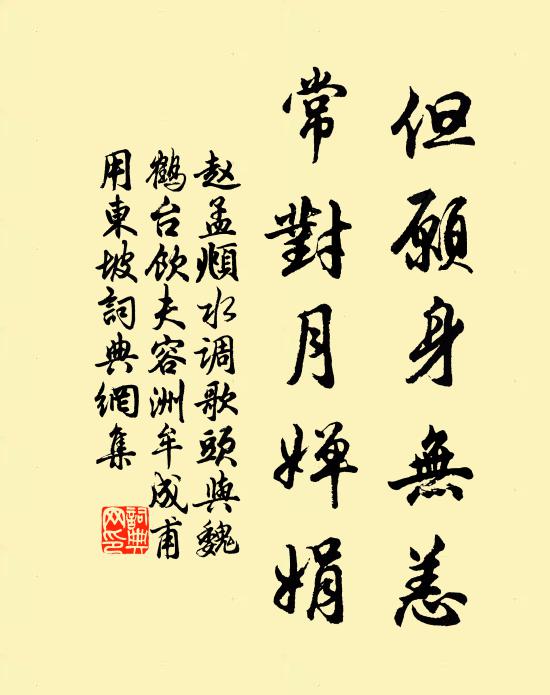 但願身無恙
常對月嬋娟
赵孟頫水调歌頭與魏
鶴台饮夫容洲牟成甫
用東坡詞典網集
詞典网印